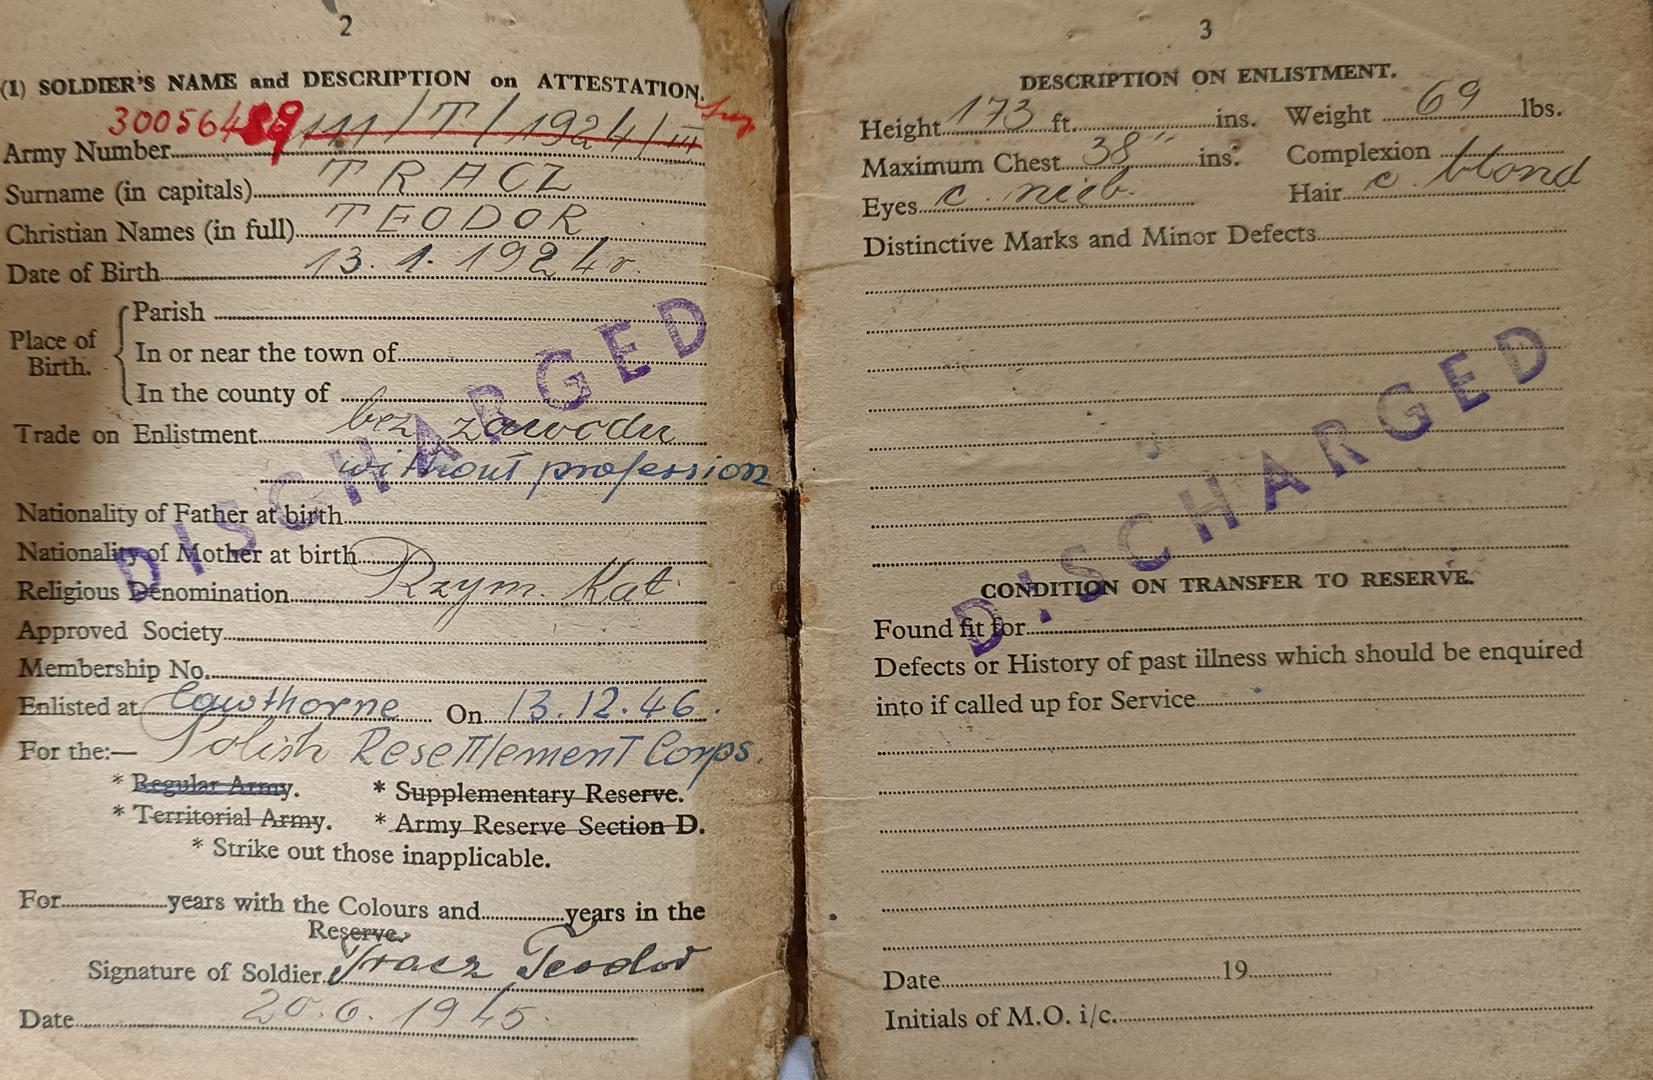 2
(1) SOLDIER'S NAME and DESCRIPTION on ATTESTATION.
Army Number 111/T/1924/III
Surname (in capitals) TRACZ
Christian Names (in full) TEODOR
Date of Birth 13.1.1924 r.
Place of Birth.
Parish
In or near the town of
In the county of
Trade on Enlistment bez zawodu
without profession
Nationality of Father at birth
Nationality of Mother at birth
Religious Denomination Rzym. Kat.
Approved Society
Membership No.
Enlisted at Cawthorne On 13.12.46.
For the:— Polish Resettlement Corps.
* Regular Army. * Supplementary Reserve.
* Territorial Army. * Army Reserve Section D.
* Strike out those inapplicable.
For years with the Colours and years in the
Reserve.
Signature of Soldier Tracz Teodor
Date 20.6.1945.
DISCHARGED
3
DESCRIPTION ON ENLISTMENT.
Height 173 ft. ins. Weight 69 lbs.
Maximum Chest 38" ins. Complexion
Eyes c. nieb. Hair c. blond
Distinctive Marks and Minor Defects
CONDITION ON TRANSFER TO RESERVE.
Found fit for
Defects or History of past illness which should be enquired
into if called up for Service
Date 19
Initials of M.O. i/c.
DISCHARGED